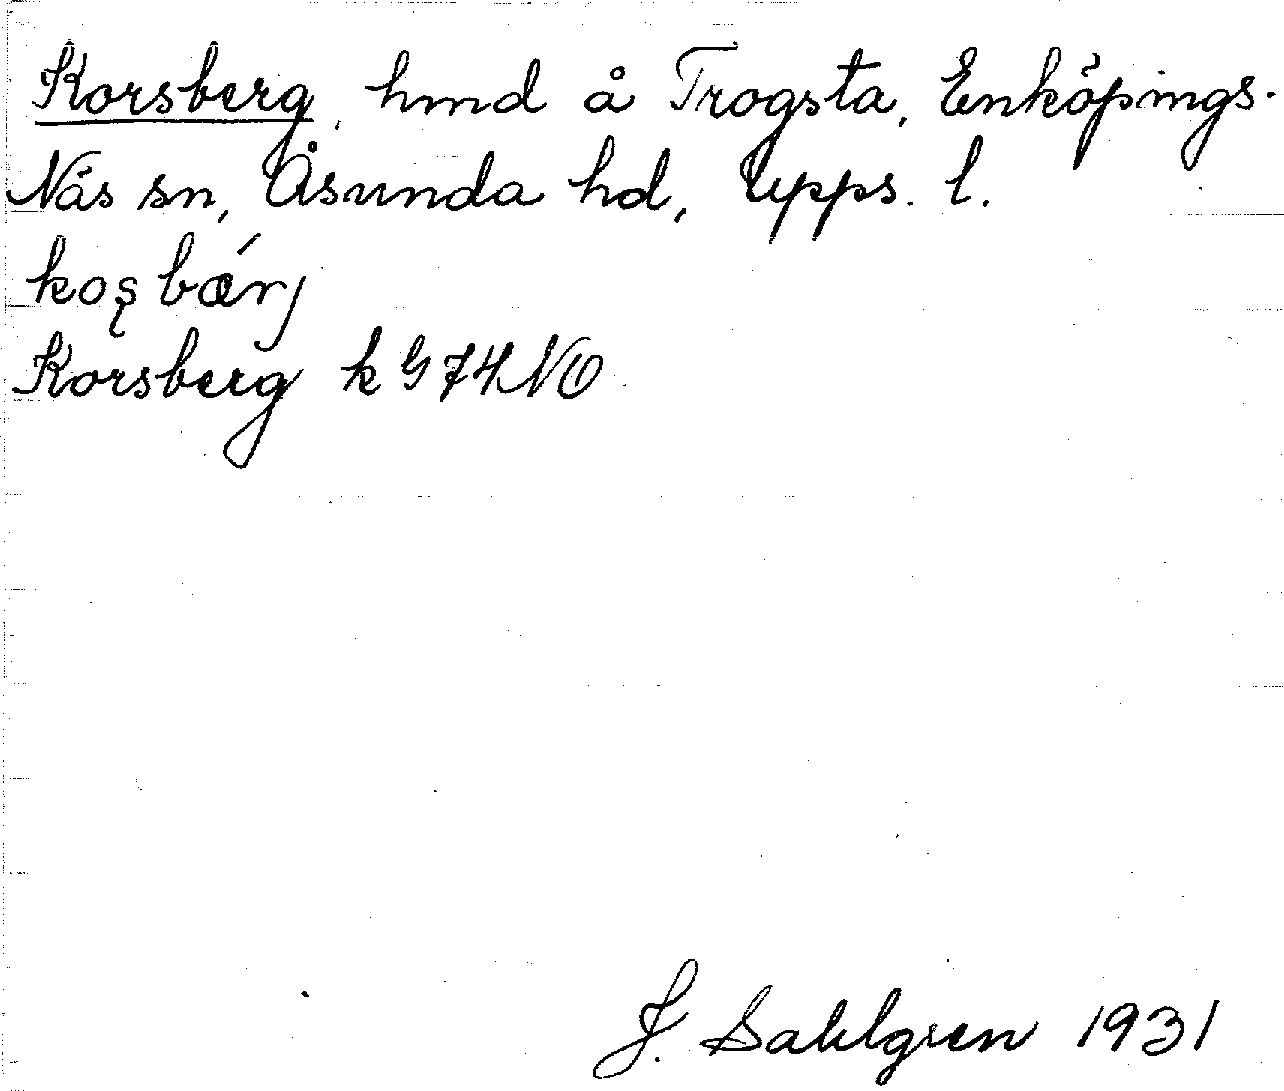 Korsberg, hmd å Trogsta, Enköpings-
Näs sn, Åsunda hd, Upps. l.
koʂbǽrj
Korsberg k G74NO
J. Sahlgren 1931